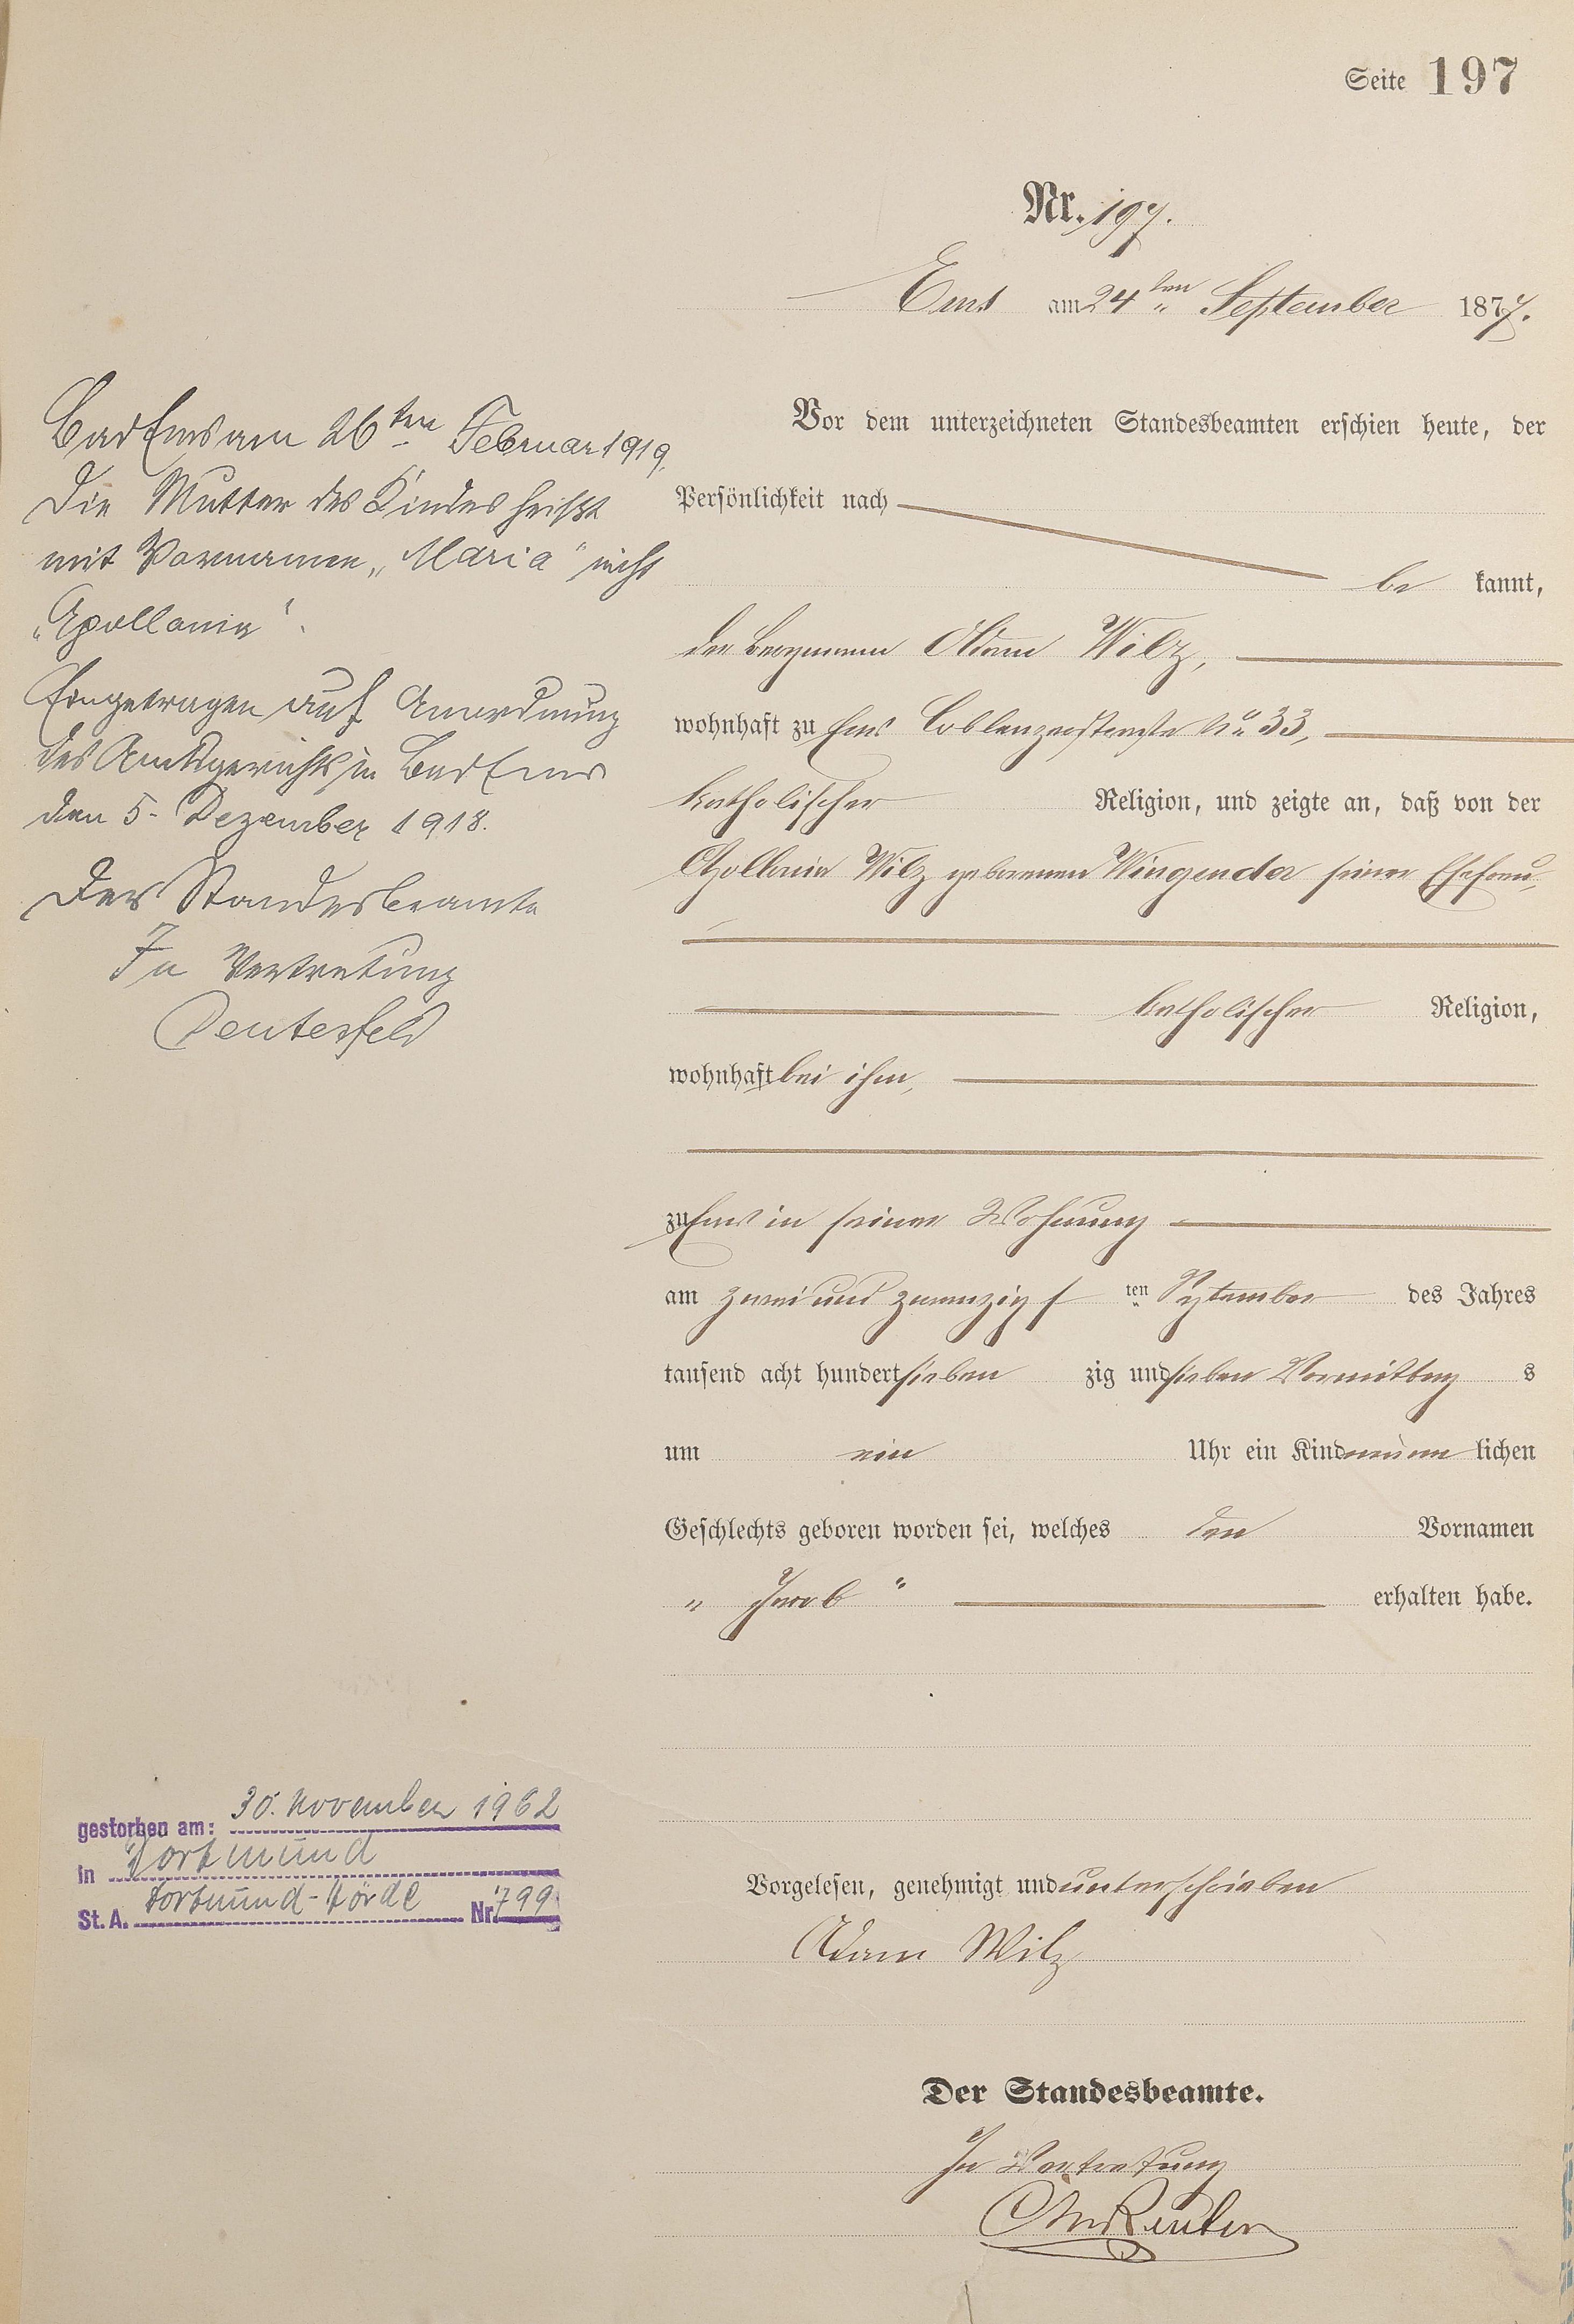 Seite 197
Nr. 197.
Ems am 24ten September 1877.
Bad Ems am 26ten Februar 1919.
Die Mutter des Kindes heißt
mit Vornamen „Maria" nicht
„Apollonia".
Eingetragen auf Anordnung
des Amtsgerichts in Bad Ems
den 5. Dezember 1918.
Der Standesbeamte
In Vertretung
Deutesfeld
Vor dem unterzeichneten Standesbeamten erschien heute, der
Persönlichkeit nach
be kannt,
der Bergmann Adam Wilz,
wohnhaft zu Ems Coblenzerstraße No. 33,
katholischer Religion, und zeigte an, daß von der
Apollonia Wilz geborenen Wingender seiner Ehefrau,
katholischer Religion,
wohnhaft bei ihm,
zu Ems in seiner Wohnung
am zwei und zwanzigs ten September des Jahres
tausend acht hundert sieben zig und sieben Vormittag s
um ein Uhr ein Kind männ lichen
Geschlechts geboren worden sei, welches den Vornamen
„ Jacob " erhalten habe.
gestorben am: 30. November 1962
in Dortmund
St. A. Dortmund-Hörde Nr. 799
Vorgelesen, genehmigt und unterschrieben
Adam Wilz
Der Standesbeamte.
In Vertretung
Reuter